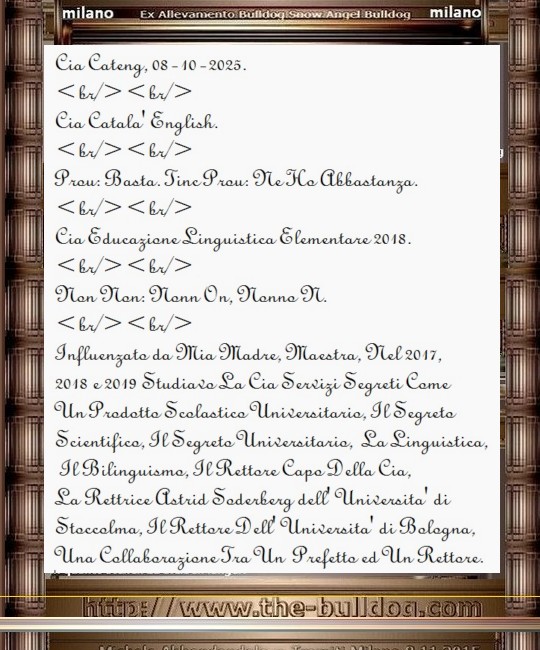 milano Ex Allevamento Bulldog Snow Angel Bulldog milano
Cia Cateng, 08-10-2025.
<br/><br/>
Cia Catala' English.
<br/><br/>
Prou: Basta. Tinc Prou: Ne Ho Abbastanza.
<br/><br/>
Cia Educazione Linguistica Elementare 2018.
<br/><br/>
Non Non: Nonn On, Nonno N.
<br/><br/>
Influenzato da Mia Madre, Maestra, Nel 2017,
2018 e 2019 Studiavo La Cia Servizi Segreti Come
Un Prodotto Scolastico Universitario, Il Segreto
Scientifico, Il Segreto Universitario, La Linguistica,
Il Bilinguismo, Il Rettore Capo Della Cia,
La Rettrice Astrid Soderberg dell' Universita' di
Stoccolma, Il Rettore Dell' Universita' di Bologna,
Una Collaborazione Tra Un Prefetto ed Un Rettore.
http://www.the-bulldog.com